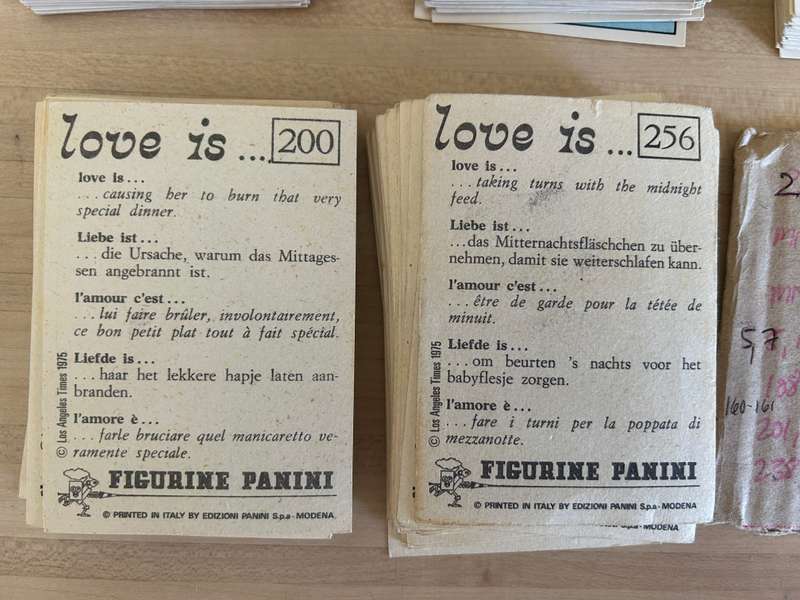 love is ... 200
love is...
...causing her to burn that very
special dinner.
Liebe ist...
...die Ursache, warum das Mittages-
sen angebrannt ist.
l'amour c'est...
...lui faire brûler, involontairement,
ce bon petit plat tout à fait spécial.
Liefde is...
...haar het lekkere hapje laten aan-
branden.
l'amore è...
...farle bruciare quel manicaretto ve-
ramente speciale.
© Los Angeles Times 1975
FIGURINE PANINI
© PRINTED IN ITALY BY EDIZIONI PANINI S.p.a - MODENA
love is ... 256
love is...
...taking turns with the midnight
feed.
Liebe ist...
...das Mitternachtsfläschchen zu über-
nehmen, damit sie weiterschlafen kann.
l'amour c'est...
...être de garde pour la tétée de
minuit.
Liefde is...
...om beurten 's nachts voor het
babyflesje zorgen.
l'amore è...
...fare i turni per la poppata di
mezzanotte.
© Los Angeles Times 1975
FIGURINE PANINI
© PRINTED IN ITALY BY EDIZIONI PANINI S.p.a - MODENA
S.p.a - MODENA
2
5,7
160-161
201,
238